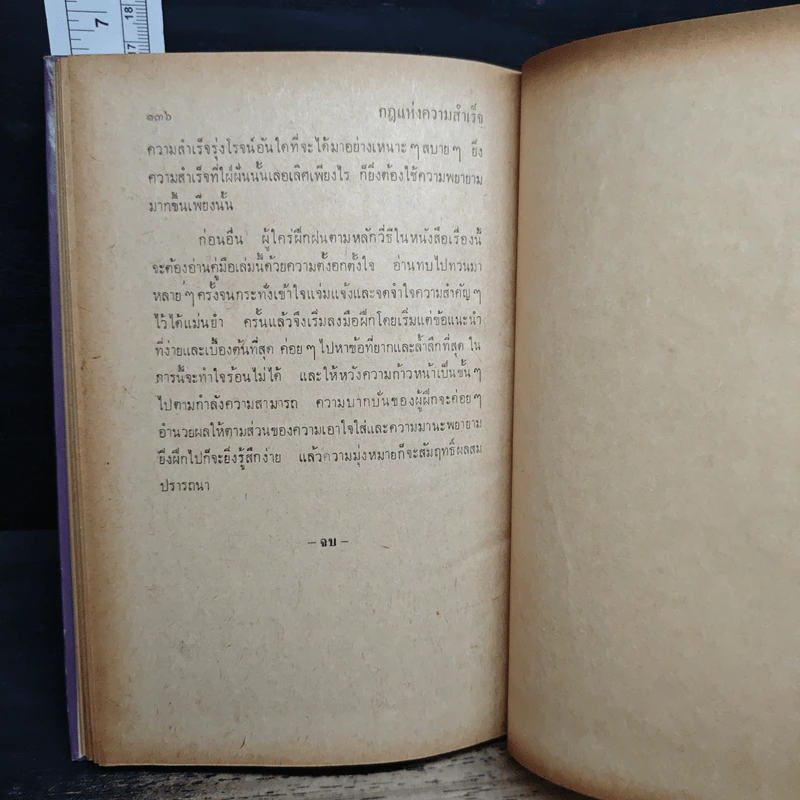 7
18
17
๑๓๖ กฎแห่งความสำเร็จ
ความสำเร็จรุ่งโรจน์อันใดที่จะได้มาอย่างเหนาะ ๆ สบาย ๆ ยิ่ง
ความสำเร็จที่ใฝ่ฝันนั้นเลอเลิศเพียงไร ก็ยิ่งต้องใช้ความพยายาม
มากขึ้นเพียงนั้น
ก่อนอื่น ผู้ใคร่ฝึกฝนตามหลักวิธีในหนังสือเรื่องนี้
จะต้องอ่านคู่มือเล่มนี้ด้วยความตั้งอกตั้งใจ อ่านทบไปทวนมา
หลาย ๆ ครั้งจนกระทั่งเข้าใจแจ่มแจ้งและจดจำใจความสำคัญ ๆ
ไว้ได้แม่นยำ ครั้นแล้วจึงเริ่มลงมือฝึกโดยเริ่มแต่ข้อแนะนำ
ที่ง่ายและเบื้องต้นที่สุด ค่อย ๆ ไปหาข้อที่ยากและล้ำลึกที่สุด ใน
การนี้จะทำใจร้อนไม่ได้ และให้หวังความก้าวหน้าเป็นขั้น ๆ
ไปตามกำลังความสามารถ ความบากบั่นของผู้ฝึกจะค่อย ๆ
อำนวยผลให้ตามส่วนของความเอาใจใส่และความมานะพยายาม
ยิ่งฝึกไปก็จะยิ่งรู้สึกง่าย แล้วความมุ่งหมายก็จะสัมฤทธิ์ผลสม
ปรารถนา
– จบ –